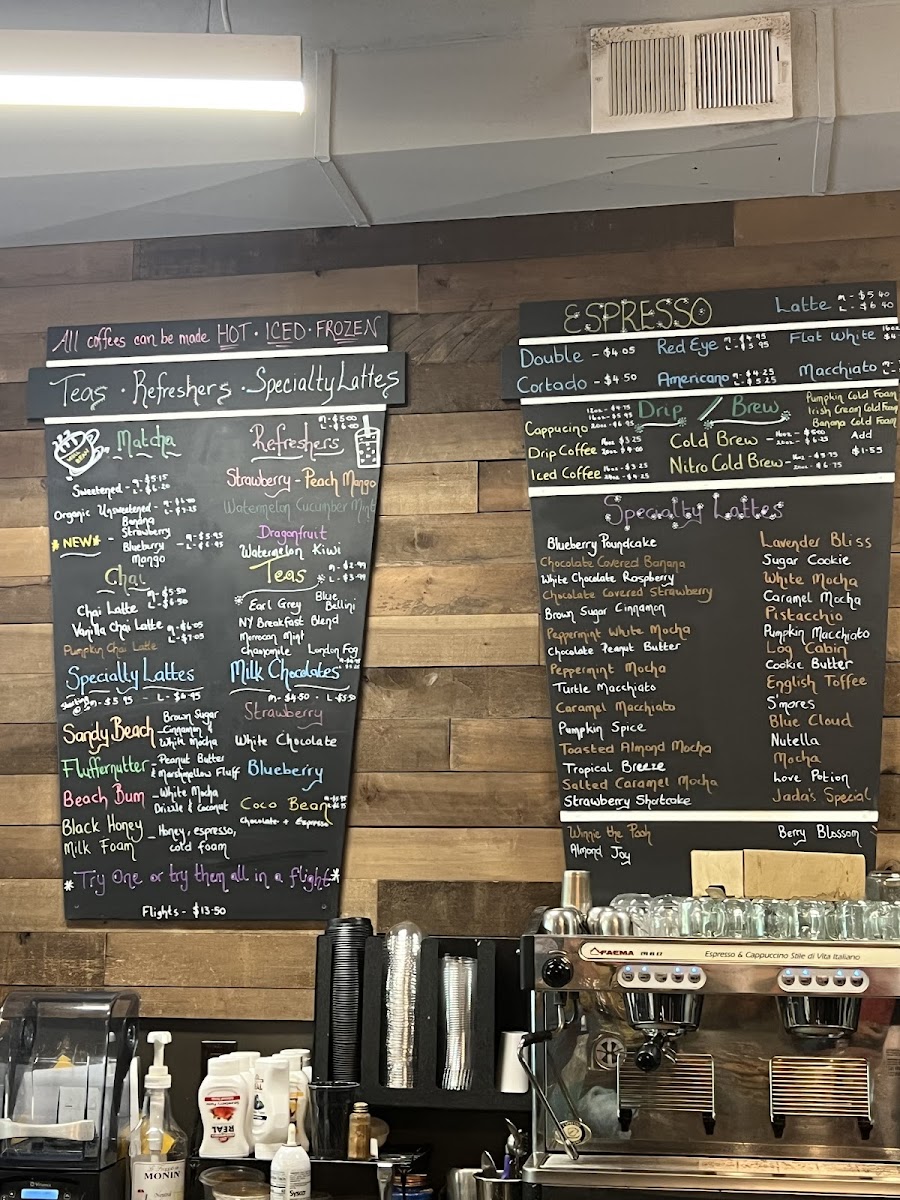 All coffees can be made HOT · ICED · FROZEN
Teas · Refreshers · Specialty Lattes
Matcha
Sweetened - M - $5.15
L - $6.20
Organic Unsweetened - M - $6.40
L - $7.25
*NEW* -
Banana
Strawberry
Blueburry
Mango
M - $5.95
L - $6.95
Chai
Chai Latte M - $5.50
L - $6.50
Vanilla Chai Latte M - $6.05
L - $7.05
Pumpkin Chai Latte
Specialty Lattes
M - $5.95 L - $6.95
Sandy Beach
Brown Sugar
Cinnamon &
White Mocha
Fluffernutter - Peanut Butter
& Marshmallow Fluff
Beach Bum - White Mocha
Drizzle & Coconut
Black Honey
Milk Foam
- Honey, espresso,
cold foam
*Try One or try them all in a flight*
Flights - $13.50
Refreshers
M - $5.00
L - $6.00
Strawberry - Peach Mango
Watermelon Cucumber Mint
Dragonfruit
Watermelon Kiwi
Teas
M - $2.99
L - $3.99
Earl Grey Blue
Bellini
NY Breakfast Blend
Moroccan Mint
Chamomile London Fog
Milk Chocolates
M - $4.50 - L - $5.50
Strawberry
White Chocolate
Blueberry
Coco Bean
Chocolate + Espresso
ESPRESSO
Latte M - $5.40
L - $6.40
Double - $4.05
Red Eye M - $4.95
L - $5.95
Flat White 16oz
Cortado - $4.50
Americano M - $4.25
L - $5.25
Macchiato
Drip / Brew
Cappucino 12oz - $4.75
16oz - $5.95
20oz - $6.95
Drip Coffee 16oz $3.25
20oz $4.00
Iced Coffee 16oz - $3.25
24oz - $4.25
Cold Brew - 16oz - $5.00
24oz - $6.25
Nitro Cold Brew - 16oz - $5.75
24oz - $6.75
Pumpkin Cold Foam
Irish Cream Cold Foam
Banana Cold Foam
Add
$1.55
Specialty Lattes
Blueberry Poundcake
Chocolate Covered Banana
White Chocolate Raspberry
Chocolate Covered Strawberry
Brown Sugar Cinnamon
Peppermint White Mocha
Chocolate Peanut Butter
Peppermint Mocha
Turtle Macchiato
Caramel Macchiato
Pumpkin Spice
Toasted Almond Mocha
Tropical Breeze
Salted Caramel Mocha
Strawberry Shortcake
Winnie the Pooh
Almond Joy
Lavender Bliss
Sugar Cookie
White Mocha
Caramel Mocha
Pistacchio
Pumpkin Macchiato
Log Cabin
Cookie Butter
English Toffee
S'mores
Blue Cloud
Nutella
Mocha
Love Potion
Jada's Special
Berry Blossom
FAEMA
Espresso & Cappuccino Stile di Vita Italiano
REAL
MONIN
Sysco